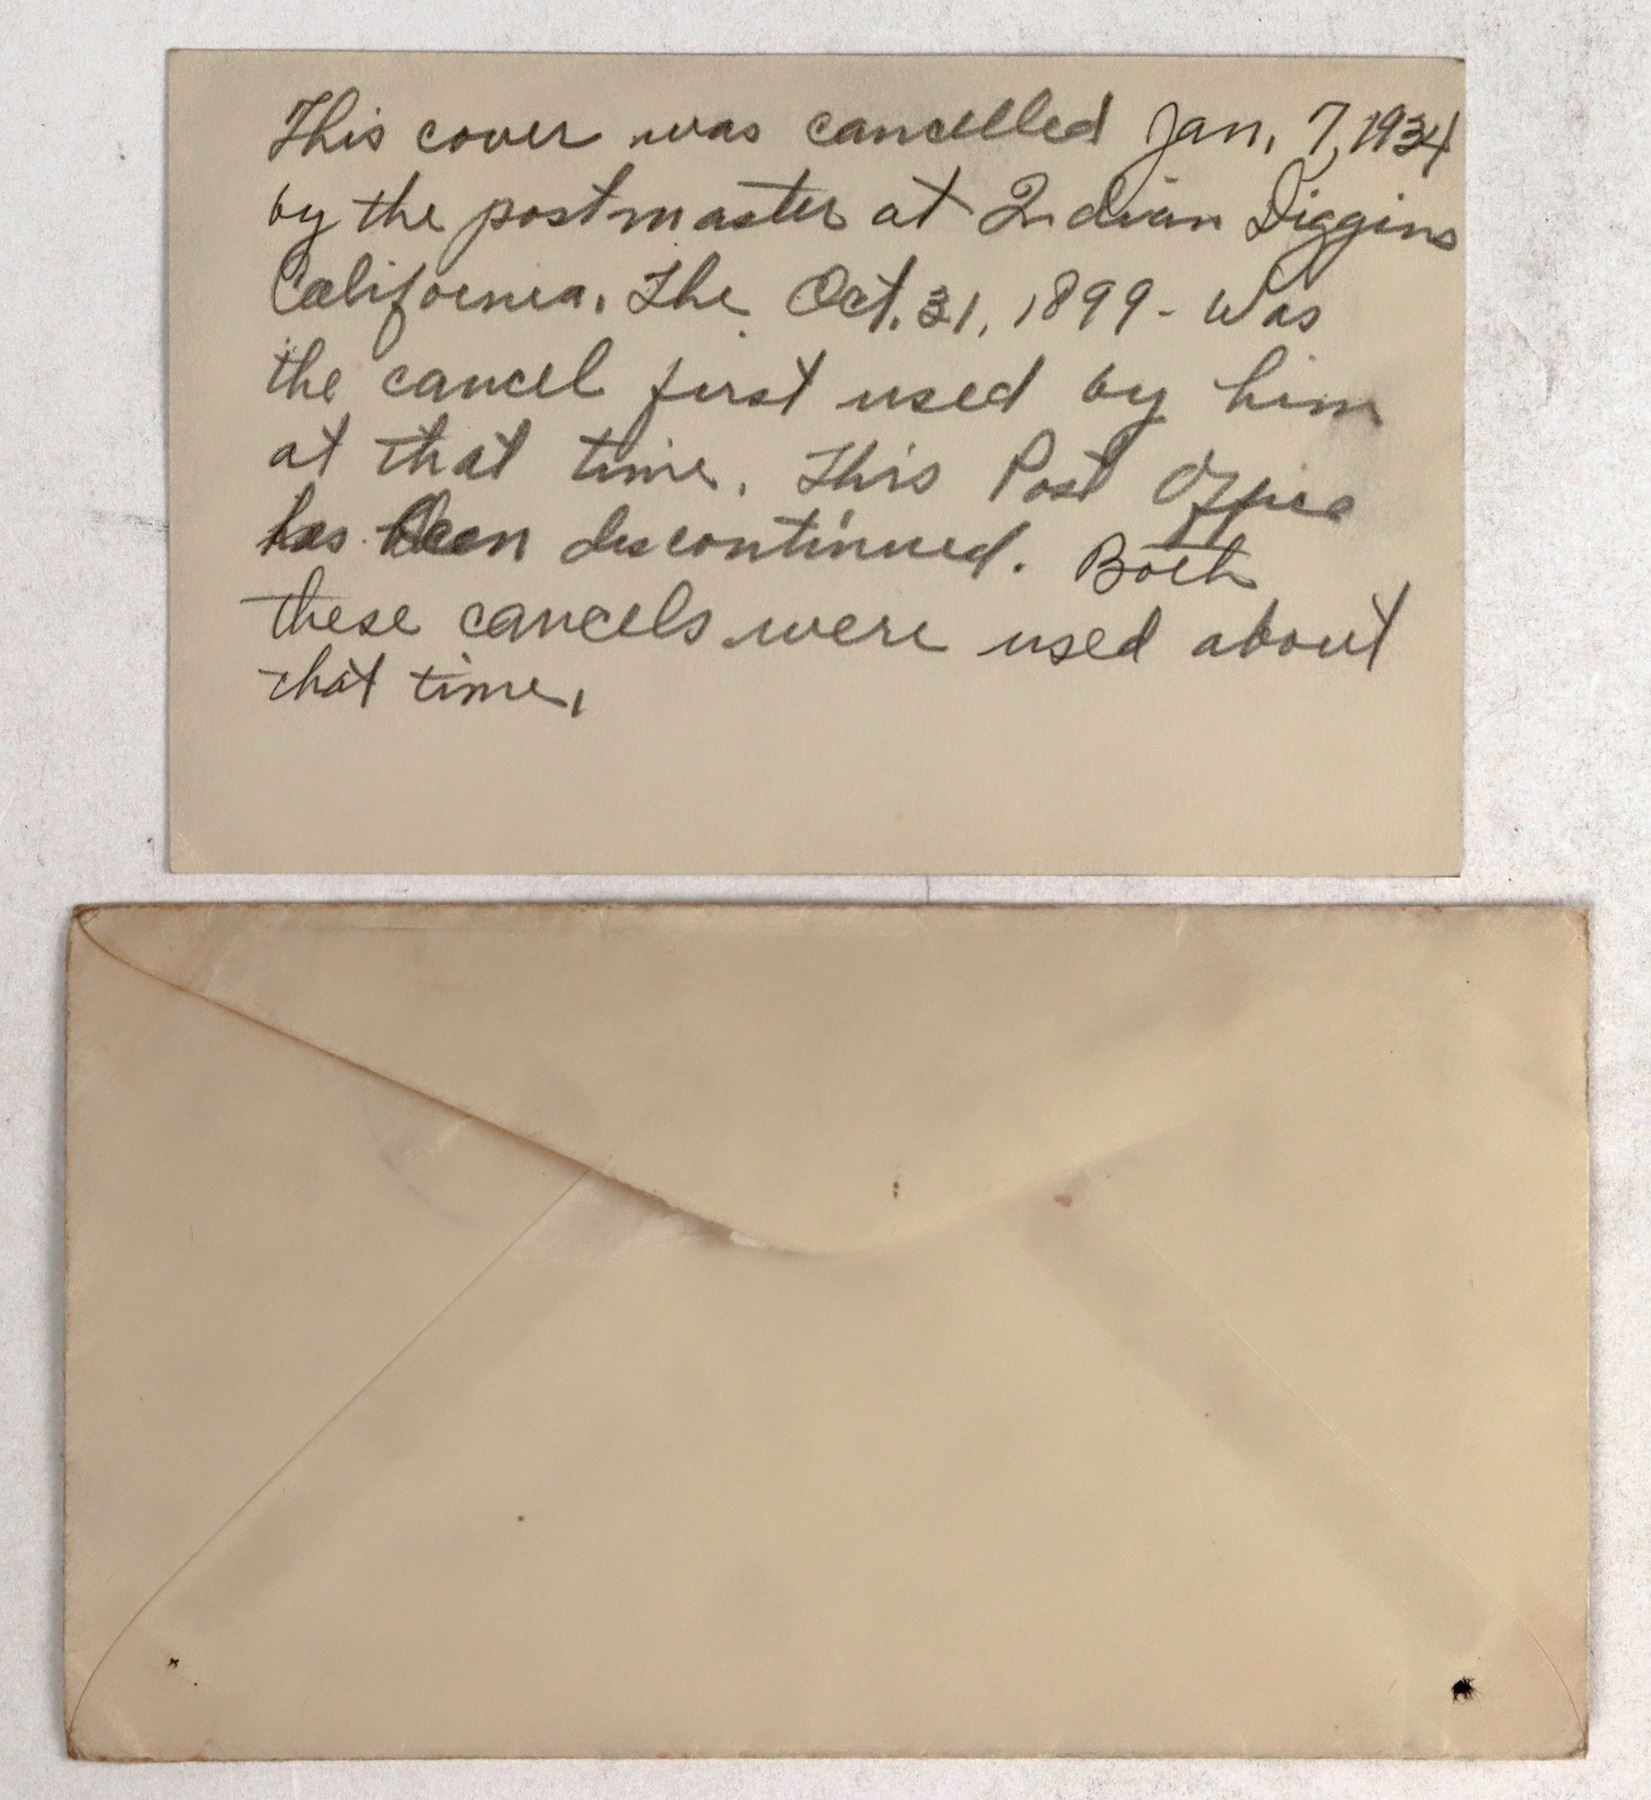 This cover was cancelled Jan. 7, 1934
by the postmaster at Indian Diggins
California. The Oct. 31, 1899 - was
the cancel first used by him
at that time. This Post Office
has been discontinued. Both
these cancels were used about
that time.